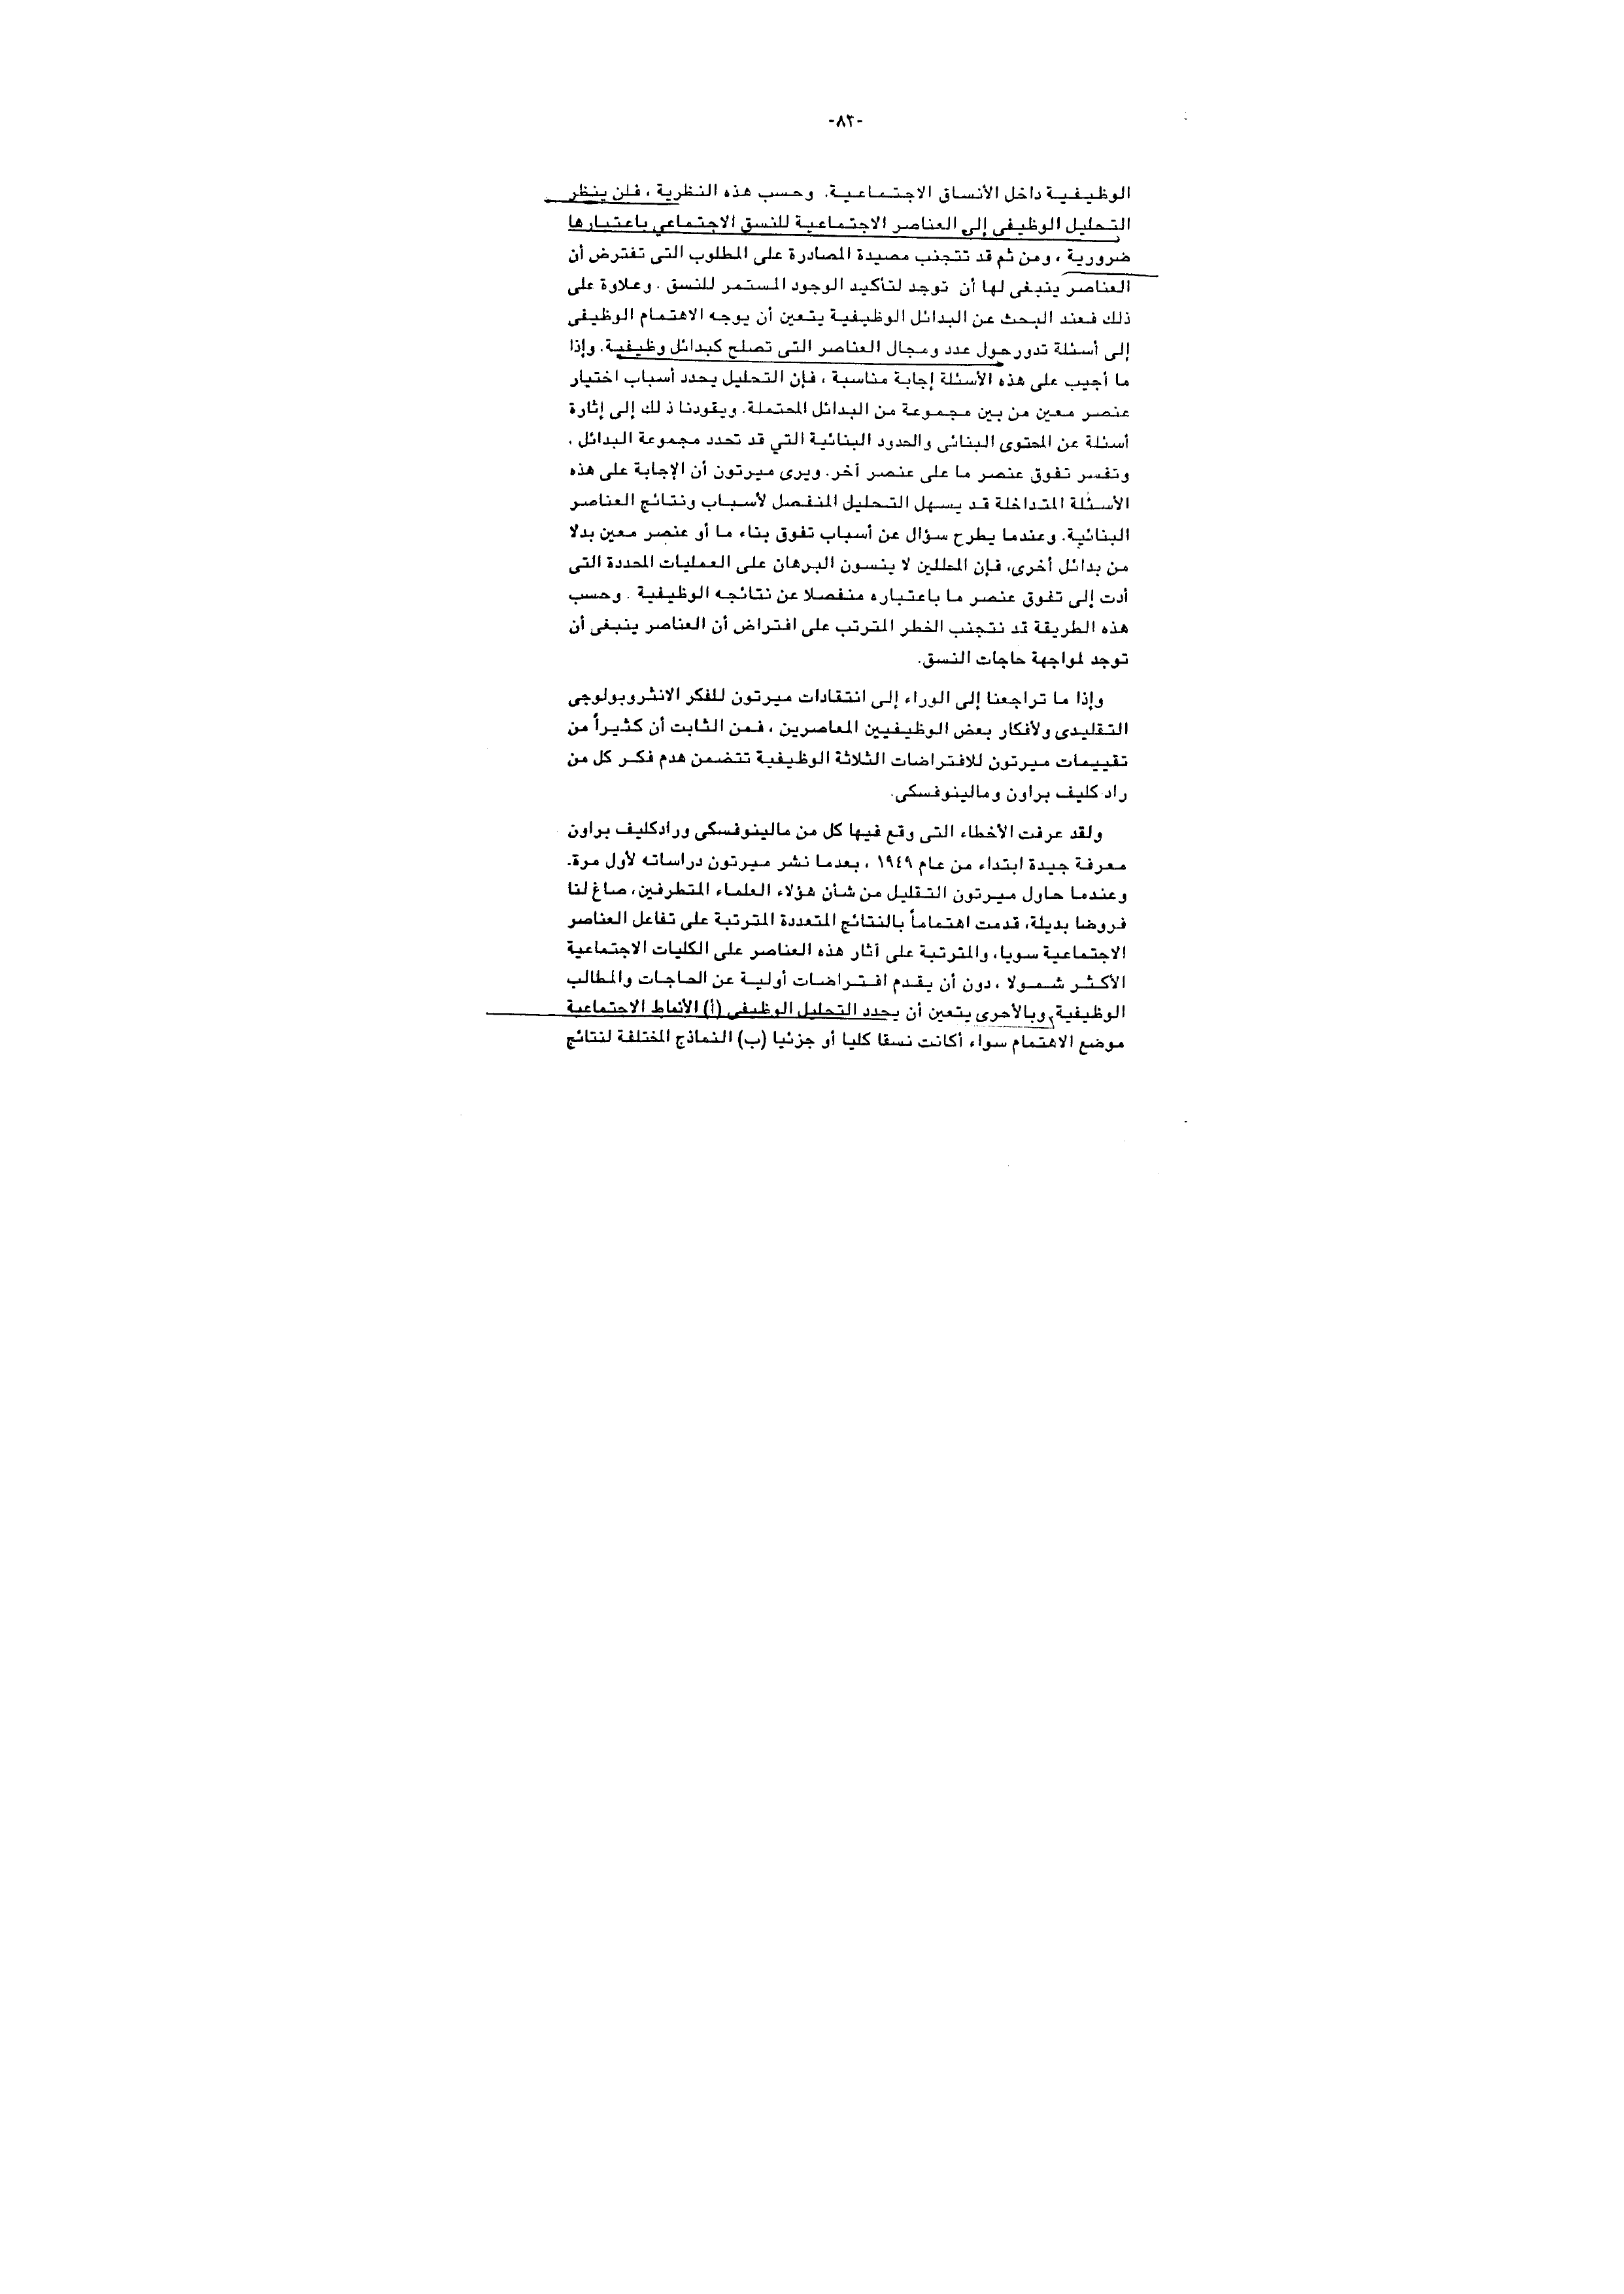 -٨٢-
الوظيفية داخل الأنساق الاجتماعية. وحسب هذه النظرية ، فلن ينظر
التحليل الوظيفى إلى العناصر الاجتماعية للنسق الاجتماعي باعتبارها
ضرورية ، ومن ثم قد تتجنب مصيدة المصادرة على المطلوب التى تفترض أن
العناصر ينبغى لها أن توجد لتأكيد الوجود المستمر للنسق . وعلاوة على
ذلك فعند البحث عن البدائل الوظيفية يتعين أن يوجه الاهتمام الوظيفى
إلى أسئلة تدور حول عدد ومجال العناصر التى تصلح كبدائل وظيفية. وإذا
ما أجيب على هذه الأسئلة إجابة مناسبة ، فإن التحليل يحدد أسباب اختيار
عنصر معين من بين مجموعة من البدائل المحتملة. ويقودنا ذلك إلى إثارة
أسئلة عن المحتوى البنائى والحدود البنائية التي قد تحدد مجموعة البدائل ،
وتفسر تفوق عنصر ما على عنصر أخر. ويرى ميرتون أن الإجابة على هذه
الأسئلة المتداخلة قد يسهل التحليل المنفصل لأسباب ونتائج العناصر
البنائية. وعندما يطرح سؤال عن أسباب تفوق بناء ما أو عنصر معين بدلا
من بدائل أخرى، فإن المحللين لا ينسون البرهان على العمليات المحددة التى
أدت إلى تفوق عنصر ما باعتباره منفصلا عن نتائجه الوظيفية . وحسب
هذه الطريقة قد نتجنب الخطر المترتب على افتراض أن العناصر ينبغى أن
توجد لمواجهة حاجات النسق.
وإذا ما تراجعنا إلى الوراء إلى انتقادات ميرتون للفكر الانثروبولوجى
التقليدى ولأفكار بعض الوظيفيين المعاصرين ، فمن الثابت أن كثيراً من
تقييمات ميرتون للافتراضات الثلاثة الوظيفية تتضمن هدم فكر كل من
راد كليف براون ومالينوفسكى.
ولقد عرفت الأخطاء التى وقع فيها كل من مالينوفسكى ورادكليف براون
معرفة جيدة ابتداء من عام ١٩٤٩ ، بعدما نشر ميرتون دراساته لأول مرة.
وعندما حاول ميرتون التقليل من شأن هؤلاء العلماء المتطرفين، صاغ لنا
فروضا بديلة، قدمت اهتماماً بالنتائج المتعددة المترتبة على تفاعل العناصر
الاجتماعية سويا، والمترتبة على أثار هذه العناصر على الكليات الاجتماعية
الأكثر شمولا ، دون أن يقدم افتراضات أولية عن الحاجات والمطالب
الوظيفية، وبالأحرى يتعين أن يحدد التحليل الوظيفى (أ) الأنماط الاجتماعية
موضع الاهتمام سواء أكانت نسقا كليا أو جزئيا (ب) النماذج المختلفة لنتائج